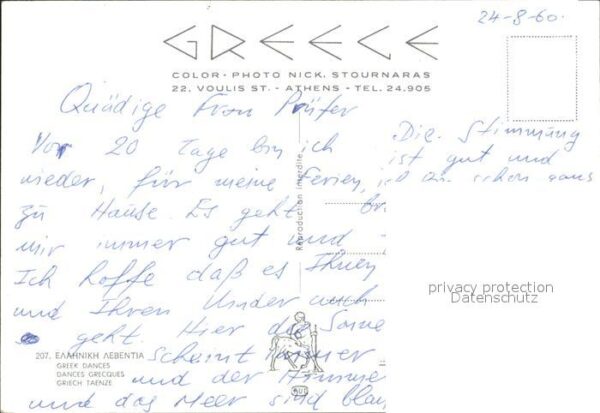 24-8-60.
GREECE
COLOR - PHOTO NICK. STOURNARAS
22. VOULIS ST. - ATHENS - TEL. 24.905
Gnädige Frau Prüfer
Vor 20 Tage bin ich
wieder, für meine Ferien,
zu Hause. Es geht
mir immer gut und
Ich hoffe daß es Ihnen
und Ihren Kinder auch
geht. Hier die Sonne
scheint immer
und der Himmel
und das Meer sind blau
Die Stimmung
ist gut und
schon ganz
Reproduction interdite
privacy protection
Datenschutz
207. ΕΛΛΗΝΙΚΗ ΛΕΒΕΝΤΙΑ
GREEK DANCES
DANCES GRECQUES
GRIECH TAENZE